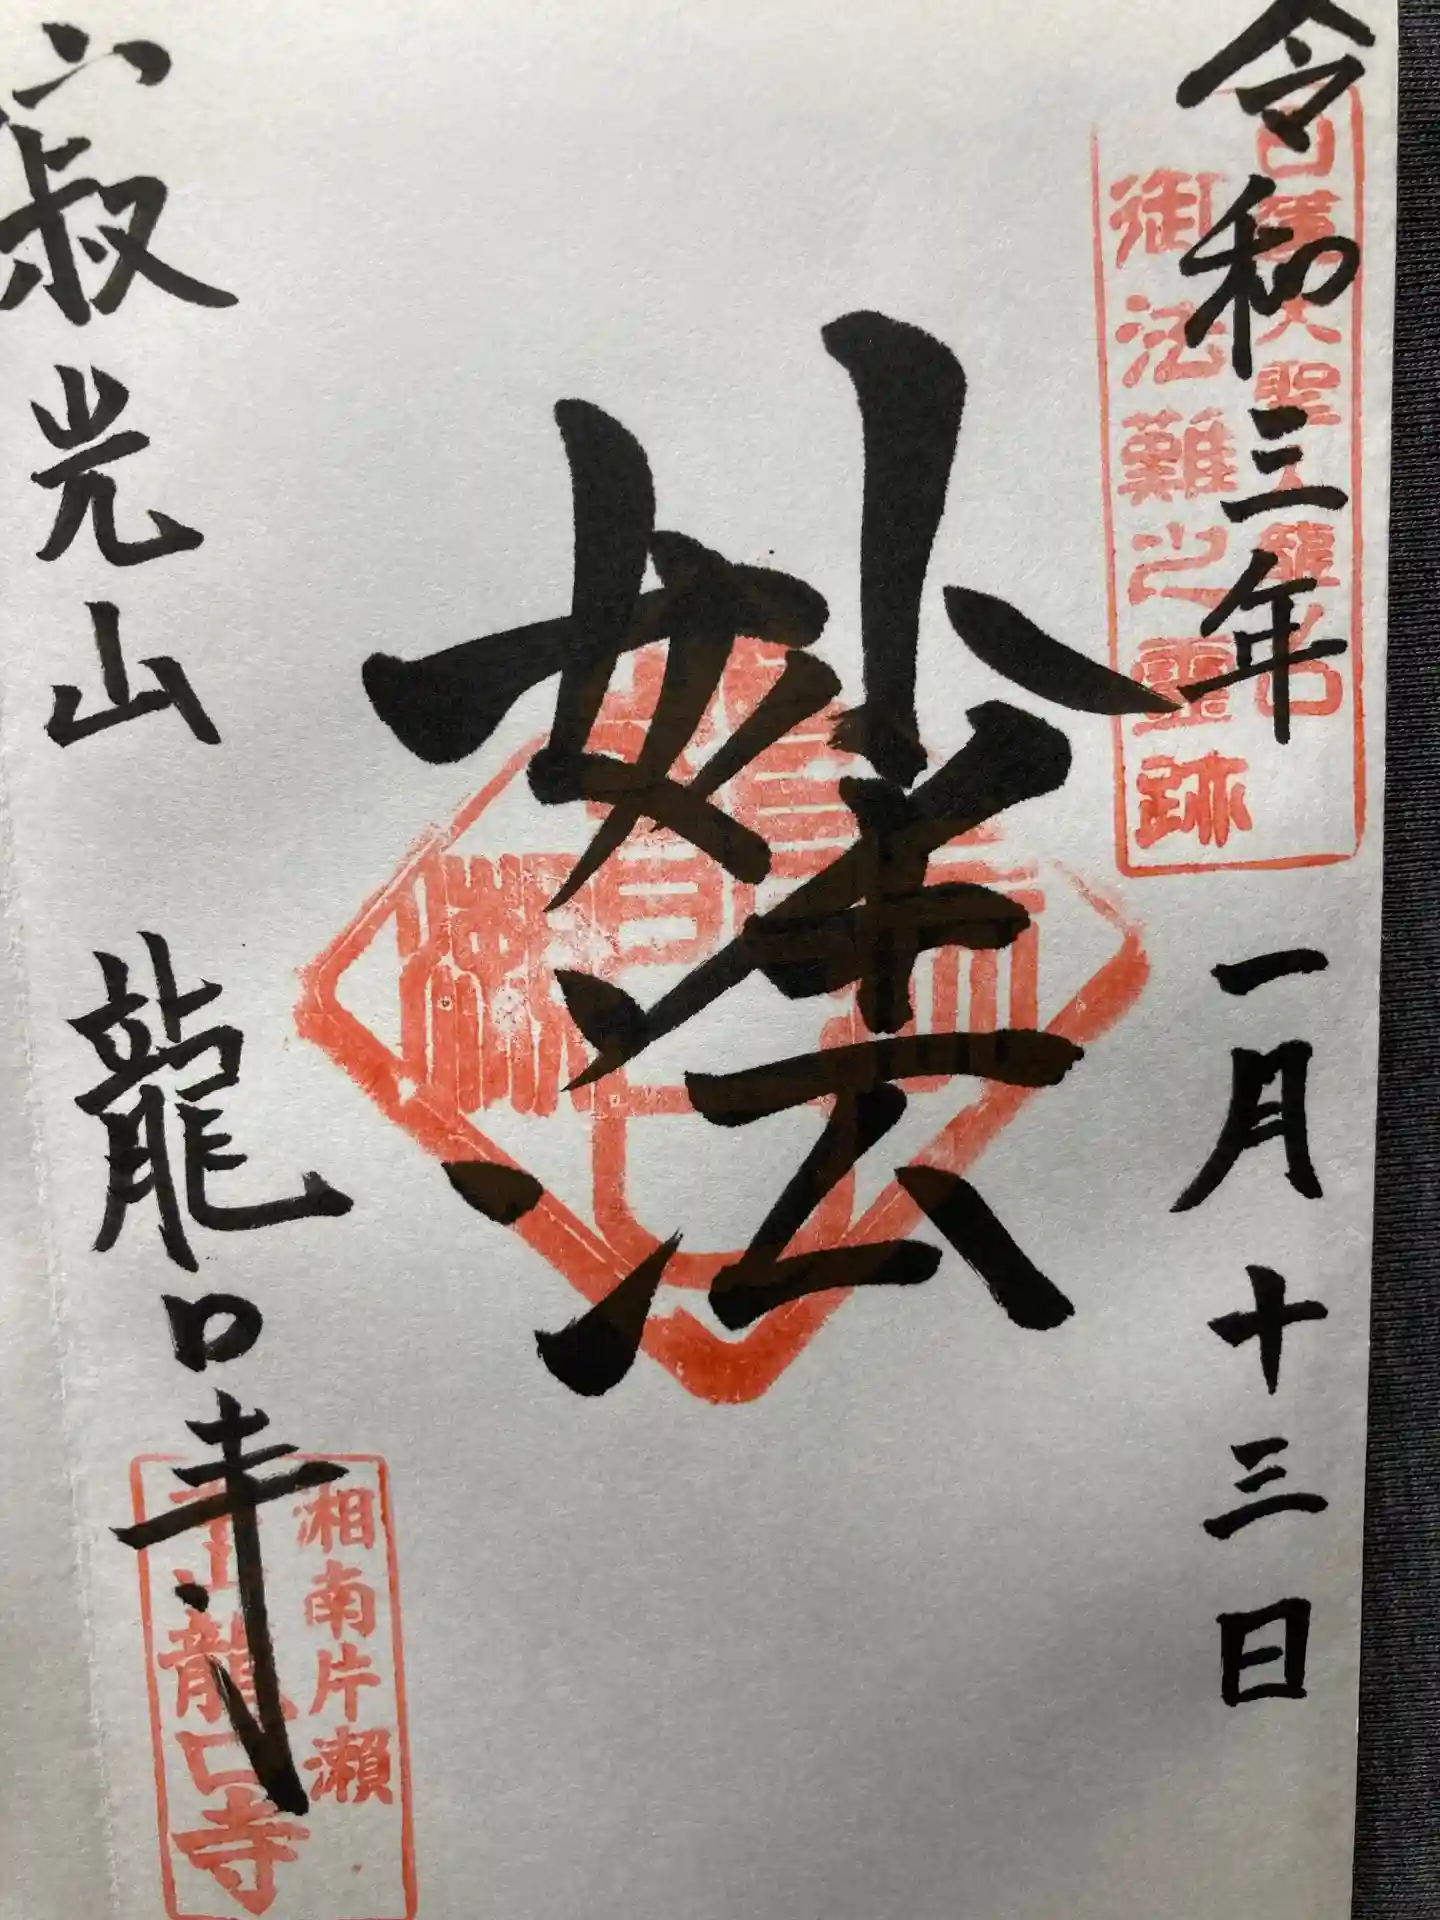 令和三年 一月十三日
日蓮大聖人龍ノ口
御法難之霊跡
妙法
寂光山 龍口寺
湘南片瀬
龍口寺